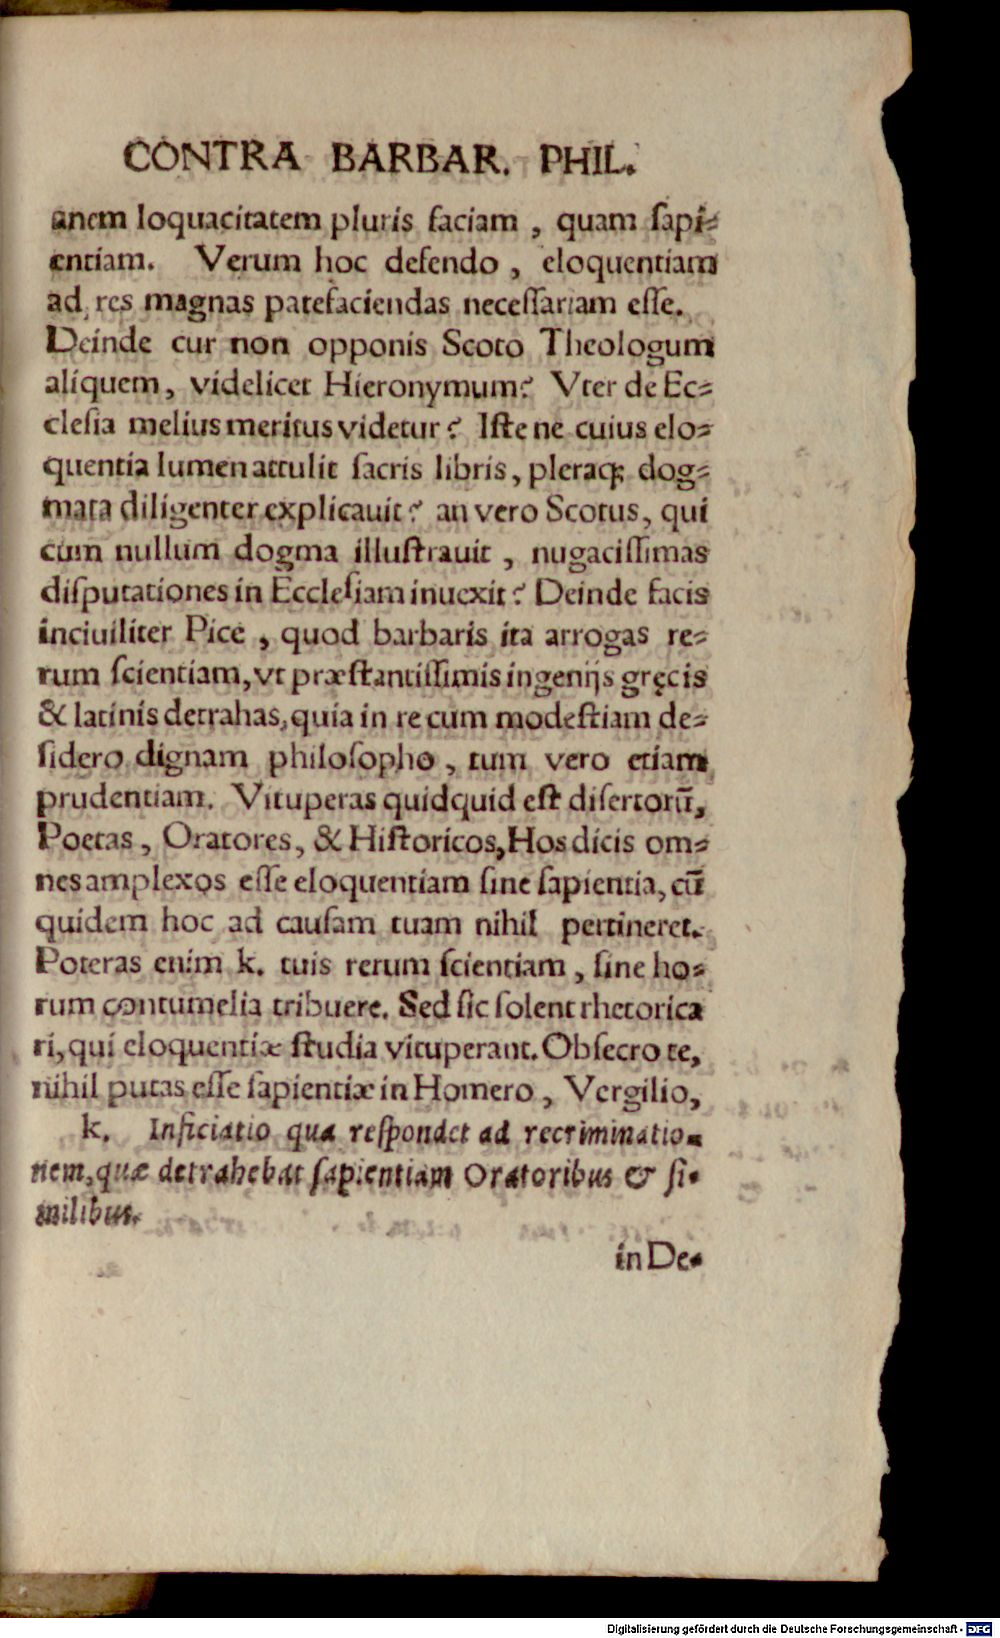 CONTRA BARBAR. PHIL.
anem loquacitatem pluris faciam , quam ſapi⸗
entiam. Verum hoc defendo , eloquentiam
ad res magnas patefaciendas neceſſariam eſſe.
Deinde cur non opponis Scoto Theologum
aliquem, videlicet Hieronymum? Vter de Ec⸗
cleſia melius meritus videtur? Iſte ne cuius elo⸗
quentia lumen attulit ſacris libris, pleraq; dog⸗
mata diligenter explicauit? an vero Scotus, qui
cum nullum dogma illuſtrauit , nugaciſſimas
diſputationes in Eccleſiam inuexit? Deinde facis
inciuiliter Pice , quod barbaris ita arrogas re⸗
rum ſcientiam, vt præſtantiſſimis ingenijs gręcis
& latinis detrahas, quia in re cum modeſtiam de⸗
ſidero dignam philoſopho , tum vero etiam
prudentiam. Vituperas quidquid eſt diſertorū,
Poetas, Oratores, & Hiſtoricos, Hos dicis om⸗
nes amplexos eſſe eloquentiam ſine ſapientia, cū
quidem hoc ad cauſam tuam nihil pertineret.
Poteras enim k. tuis rerum ſcientiam , ſine ho⸗
rum contumelia tribuere. Sed ſic ſolent rhetorica
ri, qui eloquentiæ ſtudia vituperant. Obſecro te,
nihil putas eſſe ſapientiæ in Homero , Vergilio,
k. Inficiatio qua reſpondet ad recriminatio⸗
nem, quæ detrahebat ſapientiam Oratoribus & ſi⸗
milibus.
in De⸗
Digitalisierung gefördert durch die Deutsche Forschungsgemeinschaft - DFG